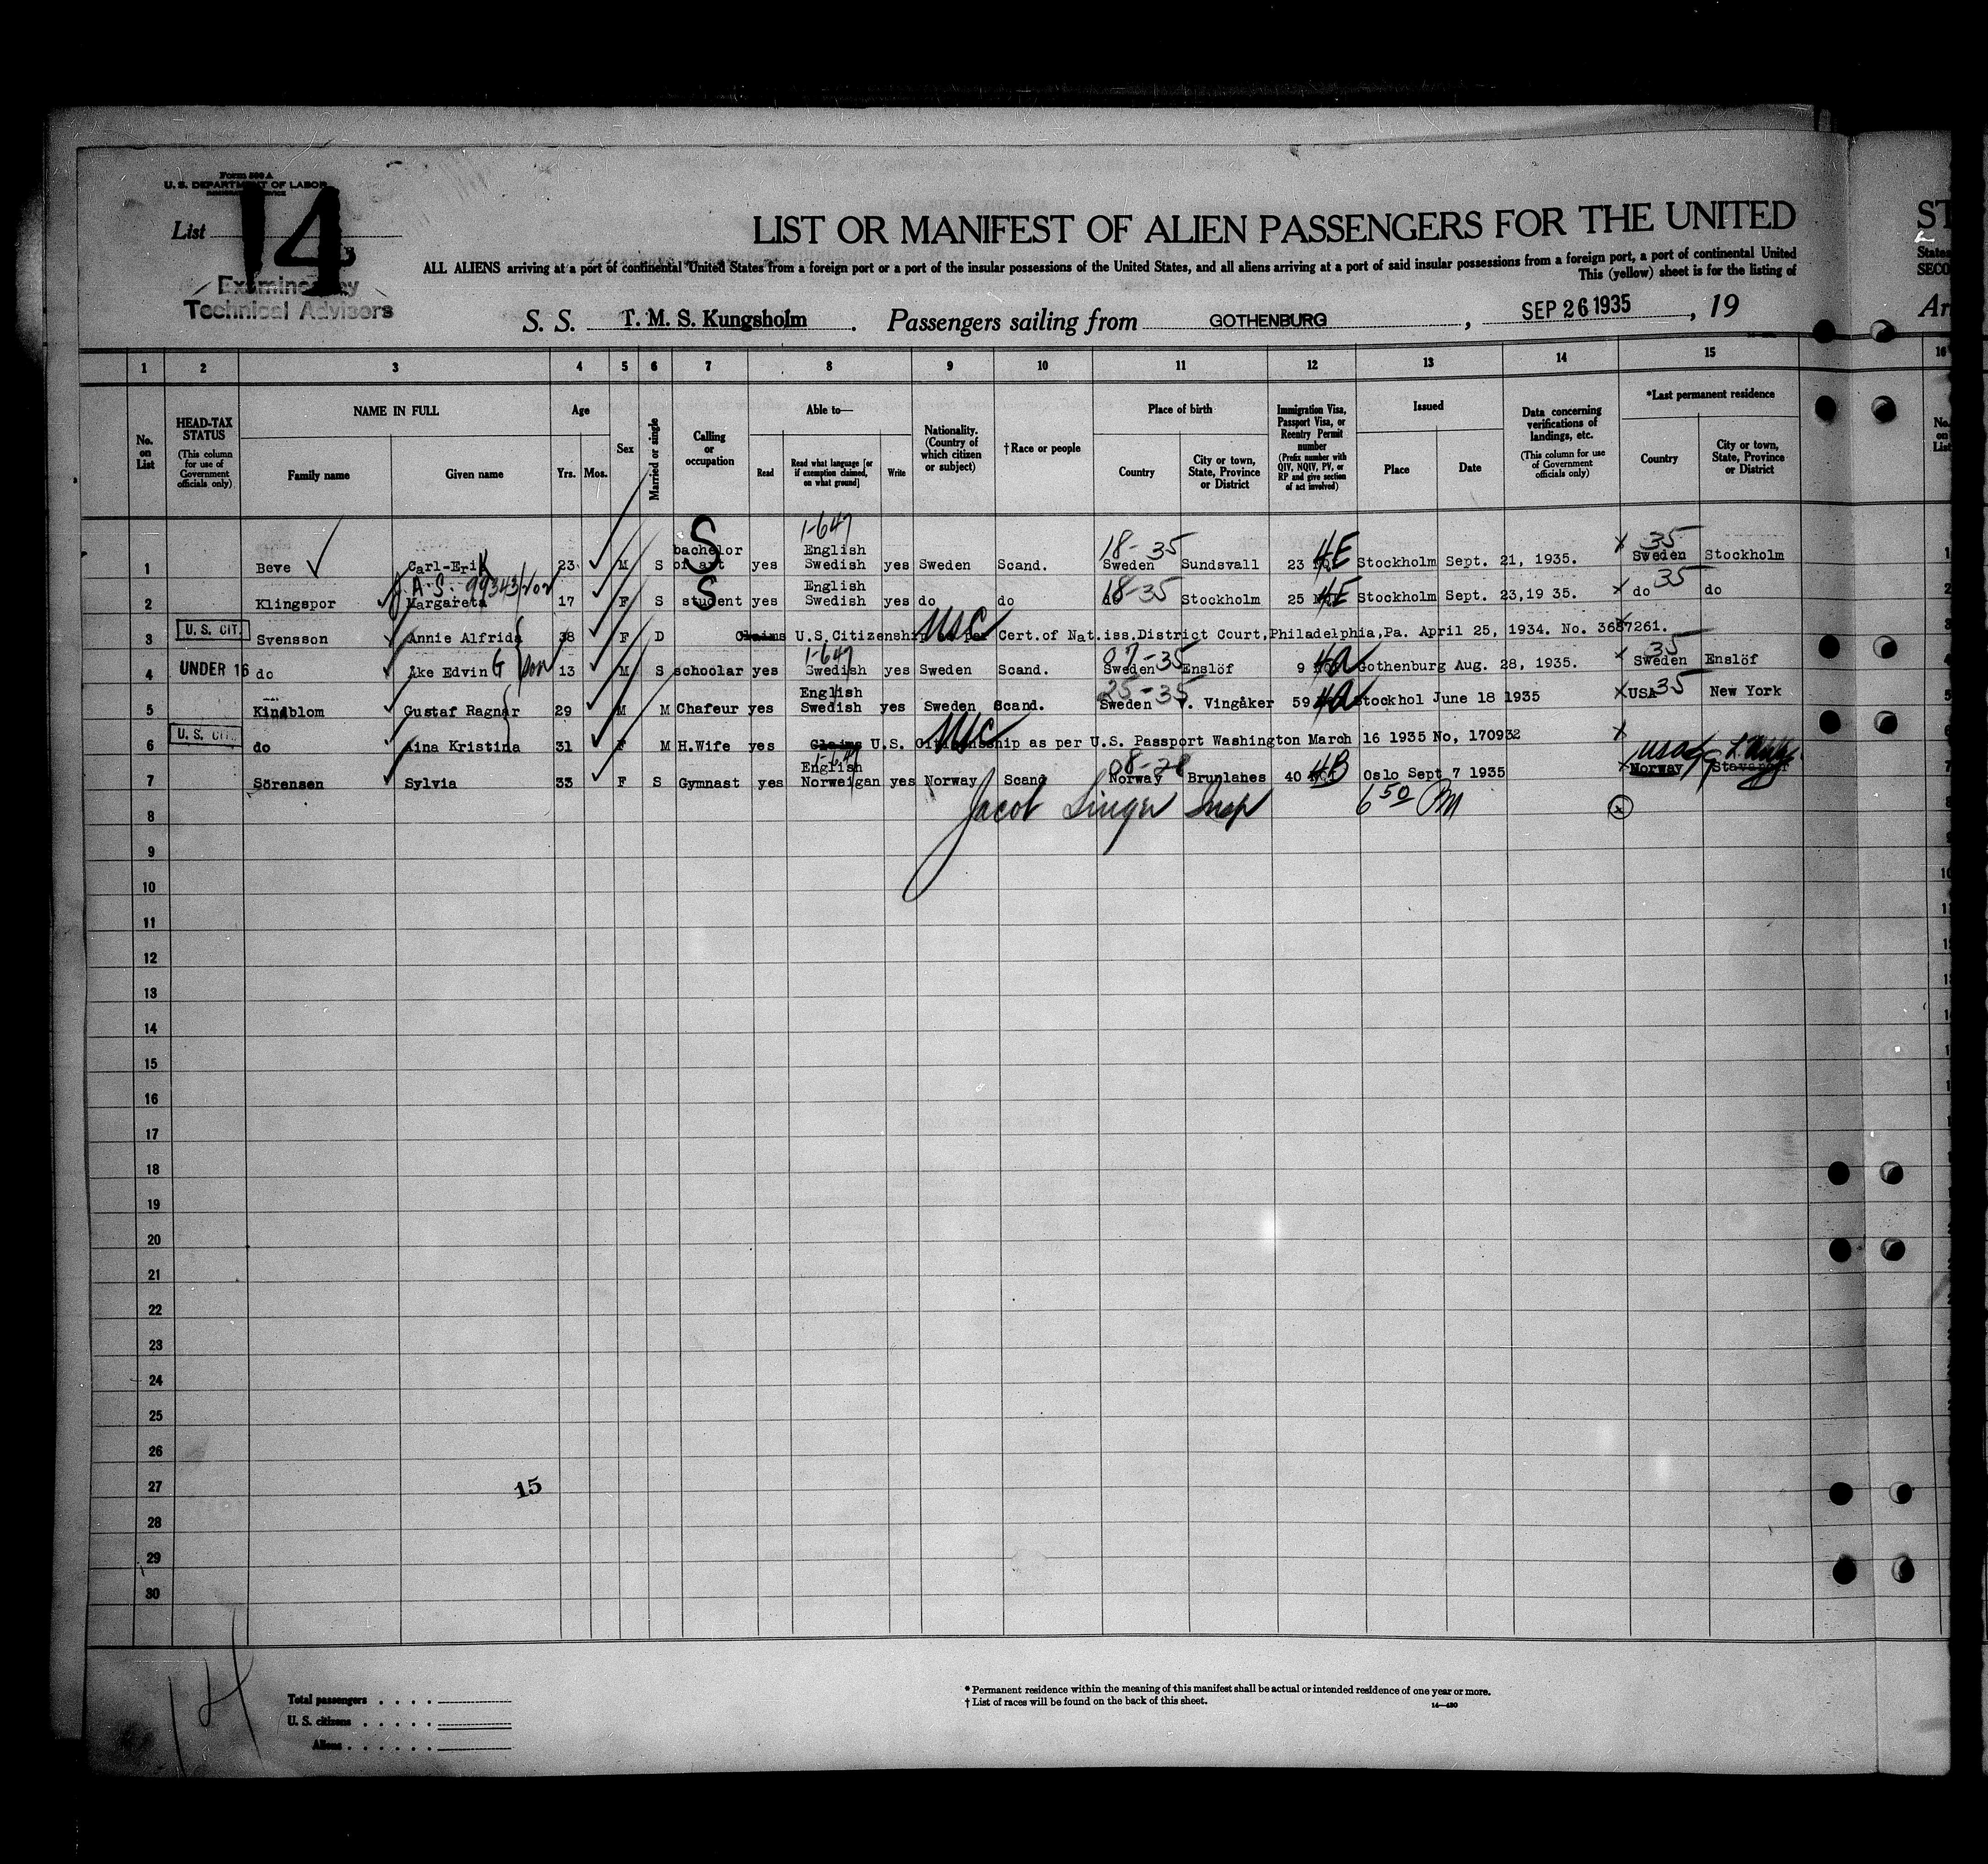 Form 500 A
U. S. DEPARTMENT OF LABOR
IMMIGRATION SERVICE
List 14
Examined by
Technical Advisers
LIST OR MANIFEST OF ALIEN PASSENGERS FOR THE UNITED
ST
ALL ALIENS arriving at a port of continental United States from a foreign port or a port of the insular possessions of the United States, and all aliens arriving at a port of said insular possessions from a foreign port, a port of continental United
States
This (yellow) sheet is for the listing of
SECO
S. S. T. M. S. Kungsholm. Passengers sailing from GOTHENBURG, SEP 26 1935, 19
Ar
1 2 3 4 5 6 7 8 9 10 11 12 13 14 15 16
No. on List
HEAD-TAX STATUS
(This column for use of Government officials only)
NAME IN FULL
Family name
Given name
Age
Yrs. Mos.
Sex
Married or single
Calling or occupation
Able to—
Read
Read what language [or if exemption claimed, on what ground]
Write
Nationality. (Country of which citizen or subject)
†Race or people
Place of birth
Country
City or town, State, Province or District
Immigration Visa, Passport Visa, or Reentry Permit number
(Prefix number with QIV, NQIV, PV, or RP and give section of act involved)
Issued
Place
Date
Data concerning verifications of landings, etc.
(This column for use of Government officials only)
*Last permanent residence
Country
City or town, State, Province or District
No. on List
S 1-647 18-35 4E 35
1 Beve Carl-Erik 23 M S bachelor of art yes English Swedish yes Sweden Scand. Sweden Sundsvall 23 Stockholm Sept. 21, 1935. Sweden Stockholm
A.S. 99343/
S 18-35 4E 35
2 Klingspor Margareta 17 F S student yes English Swedish yes do do do Stockholm 25 Stockholm Sept. 23,19 35. do do
U. S. CIT. USC
3 Svensson Annie Alfrida 38 F D Claims U.S.Citizenship as per Cert.of Nat.iss.District Court,Philadelphia,Pa. April 25, 1934. No. 3687261.
UNDER 16 1-647 07-35 4a 35
4 do Åke Edvin G son 13 M S schoolar yes Swedish yes Sweden Scand. Sweden Enslöf 9 Gothenburg Aug. 28, 1935. Sweden Enslöf
25-35 4a 35
5 Kindblom Gustaf Ragnar 29 M M Chafeur yes English Swedish yes Sweden Scand. Sweden V. Vingåker 59 Stockhol June 18 1935 USA New York
U. S. CIT. USC
6 do Aina Kristina 31 F M H.Wife yes Claims U.S. Citizenship as per U.S. Passport Washington March 16 1935 No, 170932
1-647 08-28 4B USA
7 Sörensen Sylvia 33 F S Gymnast yes English Norweigan yes Norway Scand Norway Brunlahes 40 Oslo Sept 7 1935 Norway Stavanger
Jacob Singer Insp 6 50 PM
8
9
10
11
12
13
14
15
16
17
18
19
20
21
22
23
24
25
26
27
15
28
29
30
14
Total passengers
U. S. citizens
Aliens
* Permanent residence within the meaning of this manifest shall be actual or intended residence of one year or more.
† List of races will be found on the back of this sheet.
14—430